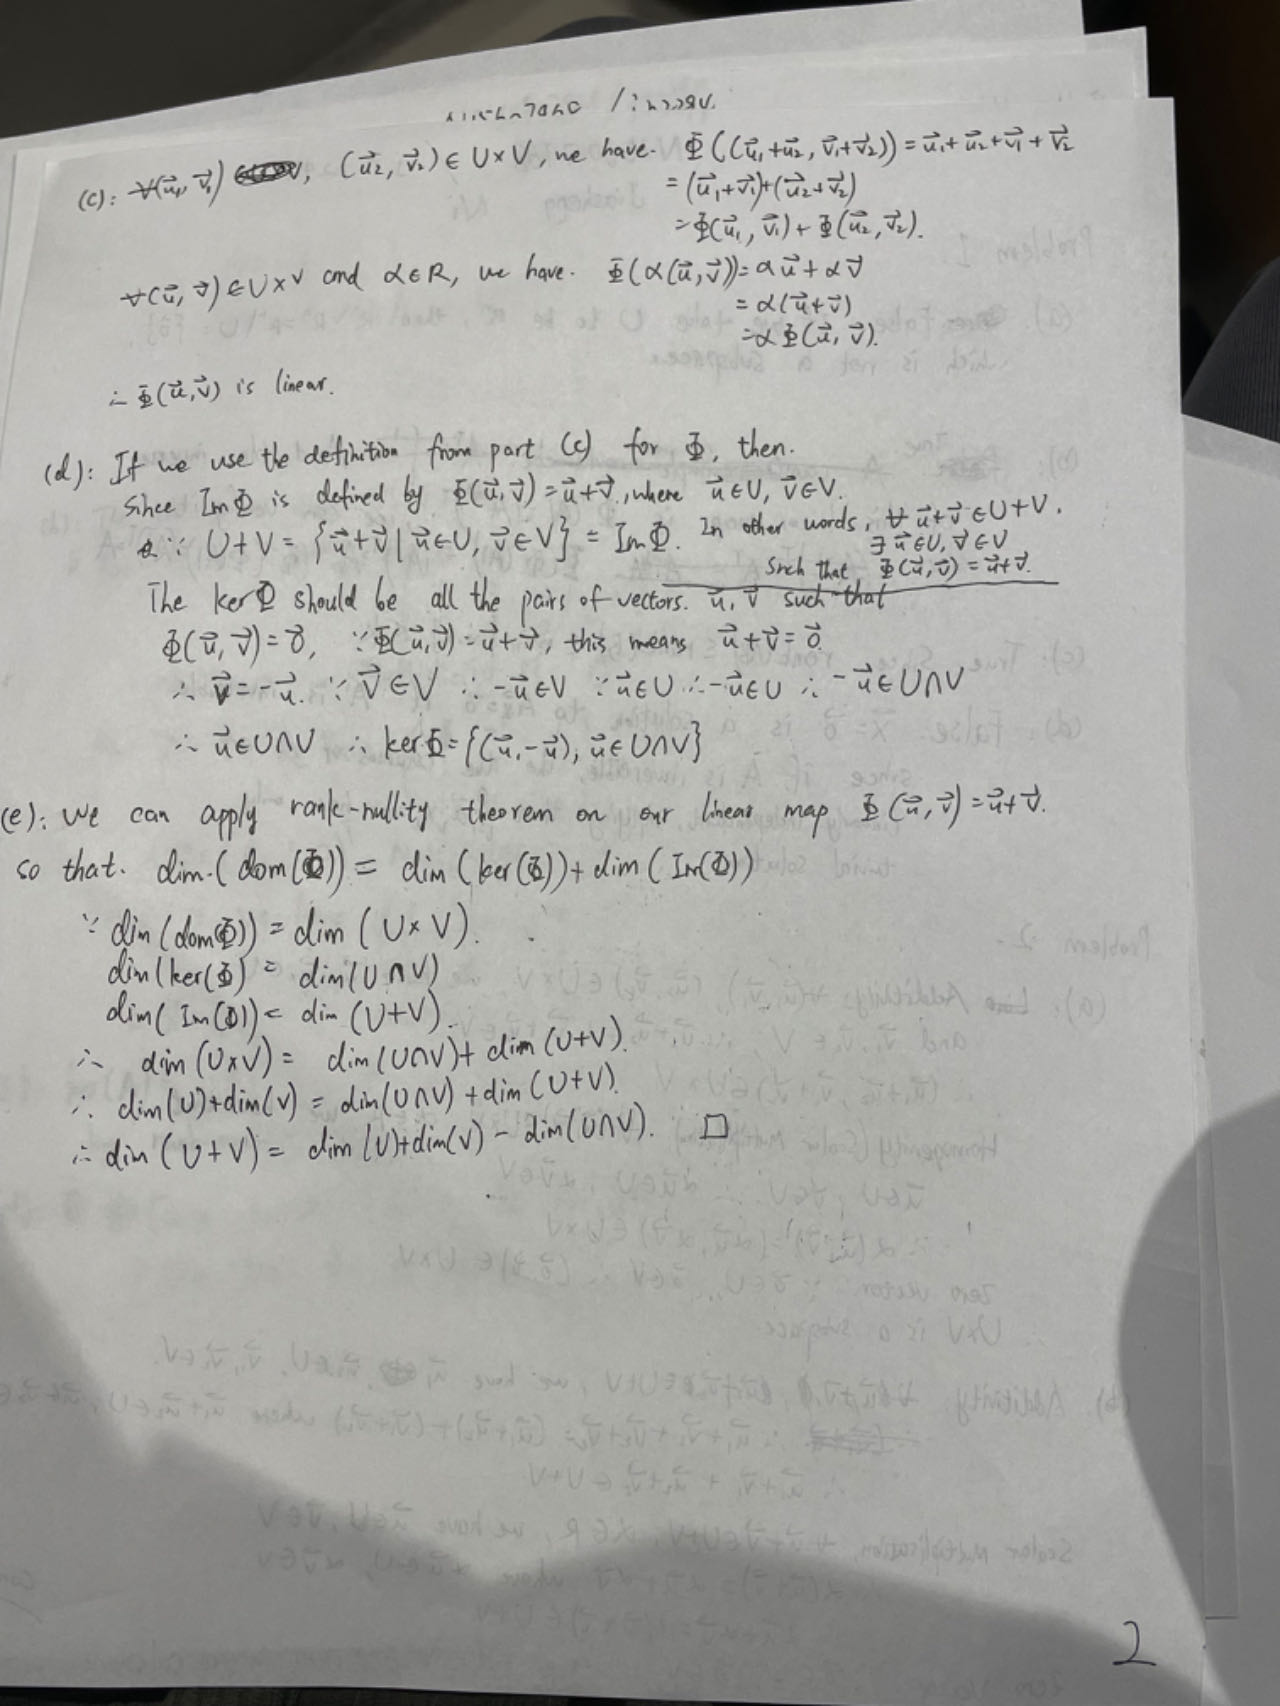 (c): ∀(u⃗₁, v⃗₁), (u⃗₂, v⃗₂) ∈ U×V, we have. Φ((u⃗₁+u⃗₂, v⃗₁+v⃗₂)) = u⃗₁+u⃗₂+v⃗₁+v⃗₂
= (u⃗₁+v⃗₁)+(u⃗₂+v⃗₂)
= Φ(u⃗₁, v⃗₁) + Φ(u⃗₂, v⃗₂).
∀(u⃗, v⃗) ∈ U×V and α∈R, we have. Φ(α(u⃗, v⃗)) = αu⃗ + αv⃗
= α(u⃗+v⃗)
= αΦ(u⃗, v⃗).
∴ Φ(u⃗, v⃗) is linear.
(d): If we use the definition from part (c) for Φ, then.
Since ImΦ is defined by Φ(u⃗, v⃗) = u⃗+v⃗, where u⃗∈U, v⃗∈V.
∵ U+V = {u⃗+v⃗ | u⃗∈U, v⃗∈V} = ImΦ. In other words, ∀ u⃗+v⃗ ∈ U+V.
∃ u⃗∈U, v⃗∈V
such that Φ(u⃗, v⃗) = u⃗+v⃗.
The kerΦ should be all the pairs of vectors. u⃗, v⃗ such that
Φ(u⃗, v⃗) = 0⃗, ∵ Φ(u⃗, v⃗) = u⃗+v⃗, this means u⃗+v⃗ = 0⃗.
∴ v⃗ = -u⃗. ∵ v⃗∈V ∴ -u⃗∈V ∵ u⃗∈U ∴ -u⃗∈U ∴ -u⃗∈U∩V
∴ u⃗∈U∩V ∴ kerΦ = {(u⃗, -u⃗), u⃗∈U∩V}
(e): We can apply rank-nullity theorem on our linear map Φ(u⃗, v⃗) = u⃗+v⃗.
so that. dim.(dom(Φ)) = dim(ker(Φ)) + dim(Im(Φ))
∵ dim(dom(Φ)) = dim(U×V).
dim(ker(Φ) = dim(U∩V)
dim(Im(Φ)) = dim(U+V).
∴ dim(U×V) = dim(U∩V) + dim(U+V).
∴ dim(U)+dim(V) = dim(U∩V) + dim(U+V).
∴ dim(U+V) = dim(U)+dim(V) - dim(U∩V). □
2